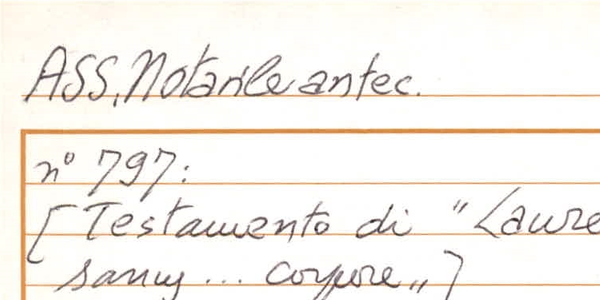 ASS, Notarile antec.
nº 797:
[Testamento di "Laure
sanus ... corpore"]